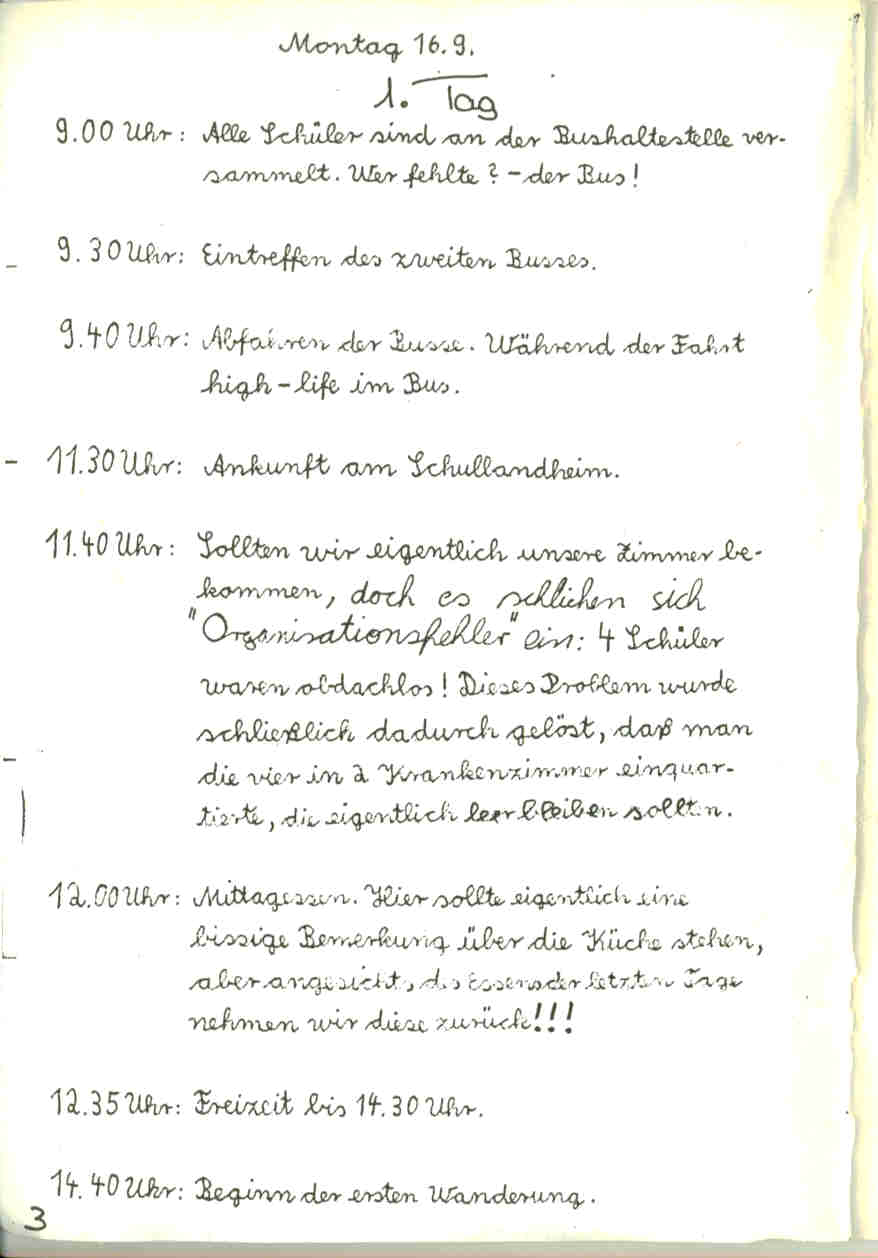 Montag 16.9.
1. Tag
9.00 Uhr: Alle Schüler sind an der Bushaltestelle ver-
sammelt. Wer fehlte? - der Bus!
9.30 Uhr: Eintreffen des zweiten Busses.
9.40 Uhr: Abfahren der Busse. Während der Fahrt
high-life im Bus.
11.30 Uhr: Ankunft am Schullandheim.
11.40 Uhr: Sollten wir eigentlich unsere Zimmer be-
kommen, doch es schlichen sich
"Organisationsfehler" ein: 4 Schüler
waren obdachlos! Dieses Problem wurde
schließlich dadurch gelöst, daß man
die vier in 2 Krankenzimmer einquar-
tierte, die eigentlich leer bleiben sollten.
12.00 Uhr: Mittagessen. Hier sollte eigentlich eine
bissige Bemerkung über die Küche stehen,
aber angesichts des Essens der letzten Tage
nehmen wir diese zurück!!!
12.35 Uhr: Freizeit bis 14.30 Uhr.
14.40 Uhr: Beginn der ersten Wanderung.
3